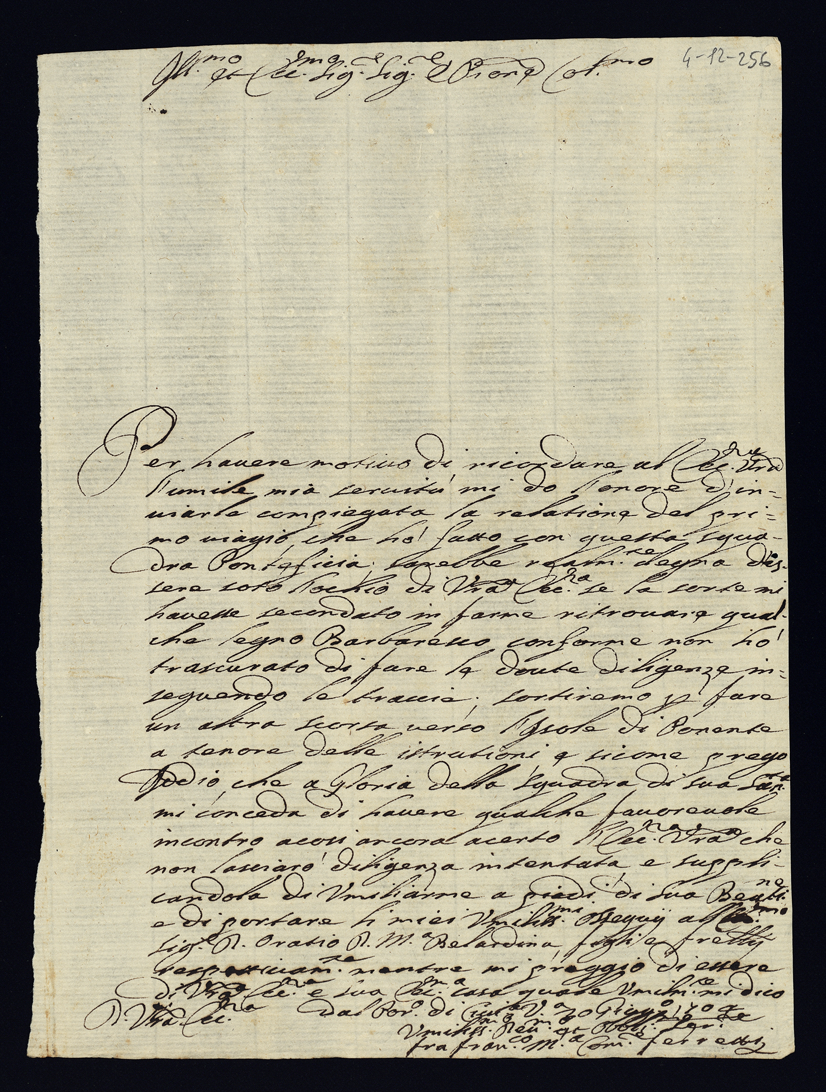 4-12-256
Ill.mo et Ecc.mo Sig.re Sig.re e Pron.e Col.mo
Per havere motivo di ricordare al Ecc.za Vra
l'umile mia servitù mi do l'onore d'in=
viarle congiegata la relatione del pri=
mo viagio che hò fatto con questa squa=
dra Pontificia; sarebbe realm.te degna d'es=
sere soto l'ochio di Vra Ecc.za se la sorte mi
havesse secondato in farme ritrovare qual=
che legno Barbaresco conforme non hò
trascurato di fare le dovute diligenze in=
seguendo le traccie; sortiremo p fare
un altra scorsa verso l'Isole di Ponente
a tenore delle istrutioni, e sicome prego
Iddio, che a Gloria della squadra di sua San.tà
mi conceda di havere qualche favorevole
incontro acosi ancora acerto l'Ecc.za Vra che
non lasciarò diligenza intentata e suppli=
candola di Umiliarme a piedi di sua Beat.ne
e di portare li miei Umiliss.mi ossequij al
Sig.r D. Oratio D. M.a Belardina, figli e frelli
mentre mi preggio di essere
di Vra Ecc.za e sua Ecc.ma casa quale Umilm.te mi dico
D. Vra Ecc.za
Dal Por.o di Civita V.a 30 Giug.o
Umiliss.mo et Obbl. Ser.
fra Fran.co M.a Com.e Ferretti